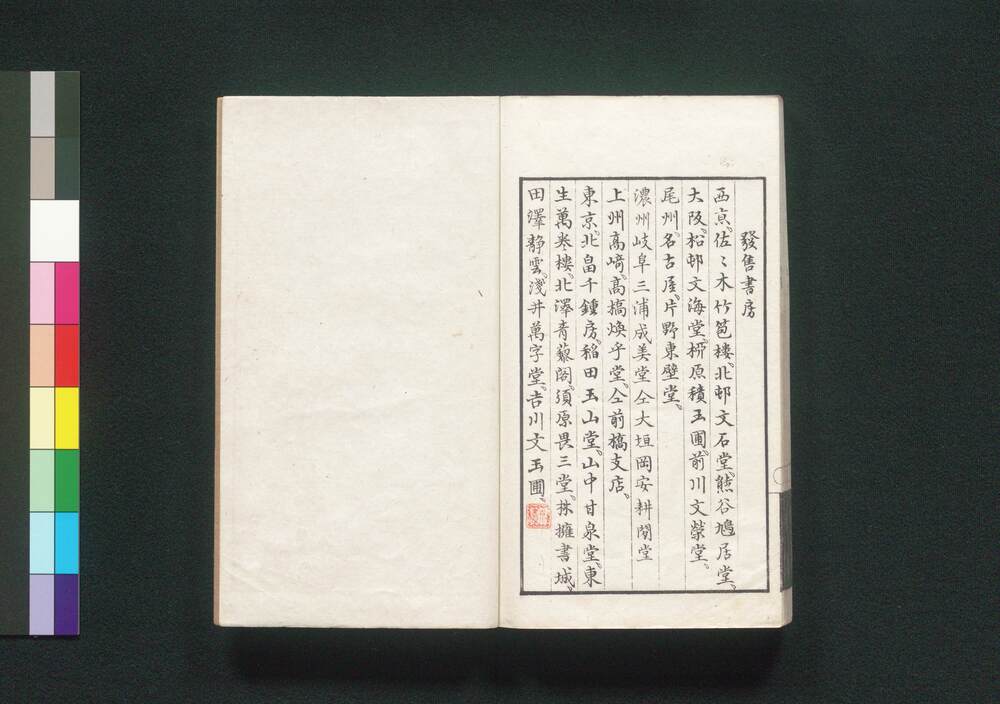 發售書房
西京。佐〻木竹苞樓。北邨文石堂。熊谷鳩居堂。
大阪。松邨文海堂。栁原積玉圃。前川文榮堂。
尾州。名古屋。片野東壁堂。
濃州岐阜三浦成美堂仝大垣岡安耕閒堂
上州高﨑。高橋煥乎堂。仝前橋支店。
東京。北畠千鍾房。稲田玉山堂。山中甘泉堂。東
生萬卷樓。北澤青藜閣。須原畏三堂。林擁書城。
田澤静雲。淺井萬字堂。吉川文玉圃。